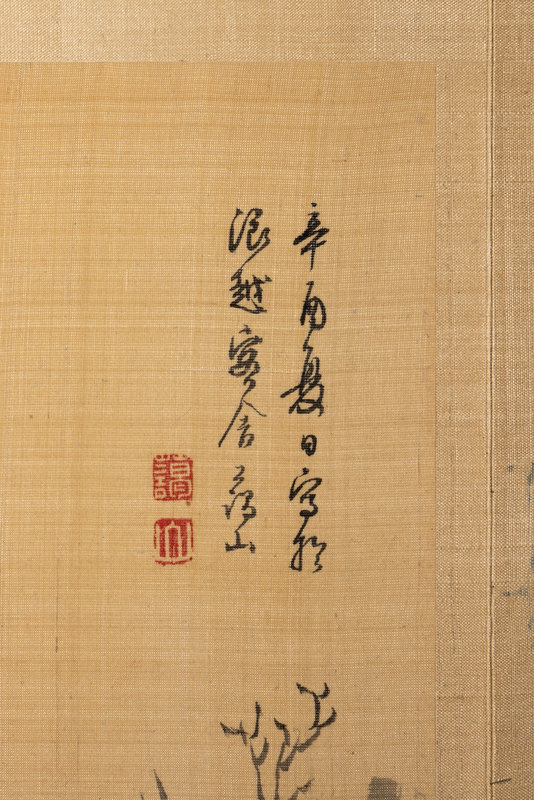 辛酉夏日寫於
浪越客舍藹山